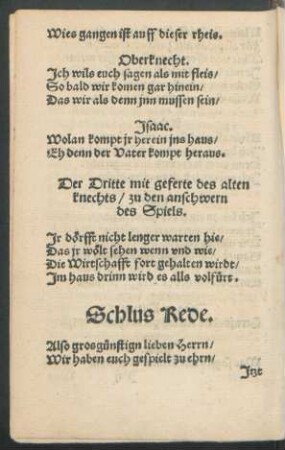 Wies gangen ist auff dieser rheis.
Oberknecht.
Ich wils euch sagen als mit fleis/
So bald wir komen gar hinein/
Das wir als denn jnn mussen sein/
Isaac.
Wolan kompt jr herein jns haus/
Eh denn der Vater kompt heraus.
Der Dritte mit geferte des alten
knechts / zu den anschwern
des Spiels.
Jr dörfft nicht lenger warten hie/
Das jr wölt sehen wenn vnd wie/
Die Wirtschafft fort gehalten wirdt/
Im haus drinn wird es alls volfürt.
Schlus Rede.
Also grosgünstign lieben Herrn/
Wir haben euch gespielt zu ehrn/
Itzt